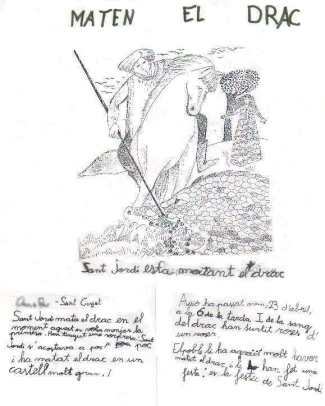 MATEN EL DRAC
Sant Jordi està matant el drac
- Sant Cugat
Sant Jordi mata el drac en el
moment d'
aquest es menjar la
princesa. Han tingut una sorpresa. Sant
Jordi s'acostava a poc poc
i ha matat el drac en un
castell molt gran.!
Això ha passat avui, 23 d'abril,
a la 6 de la tarda. I de la sang
del drac han sortit roses d'
un roser.
El poble li ha agrait molt haver
matat el drac, i han fet una
festa: es la festa de Sant Jordi